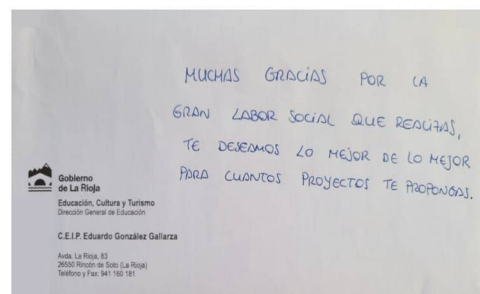 MUCHAS GRACIAS POR LA
GRAN LABOR SOCIAL QUE REALIZAS,
TE DESEAMOS LO MEJOR DE LO MEJOR
PARA CUANTOS PROYECTOS TE PROPONGAS.
Gobierno
de La Rioja
Educación, Cultura y Turismo
Dirección General de Educación
C.E.I.P. Eduardo González Gallarza
Avda. La Rioja, 83
26550 Rincón de Soto (La Rioja)
Teléfono y Fax: 941 160 181